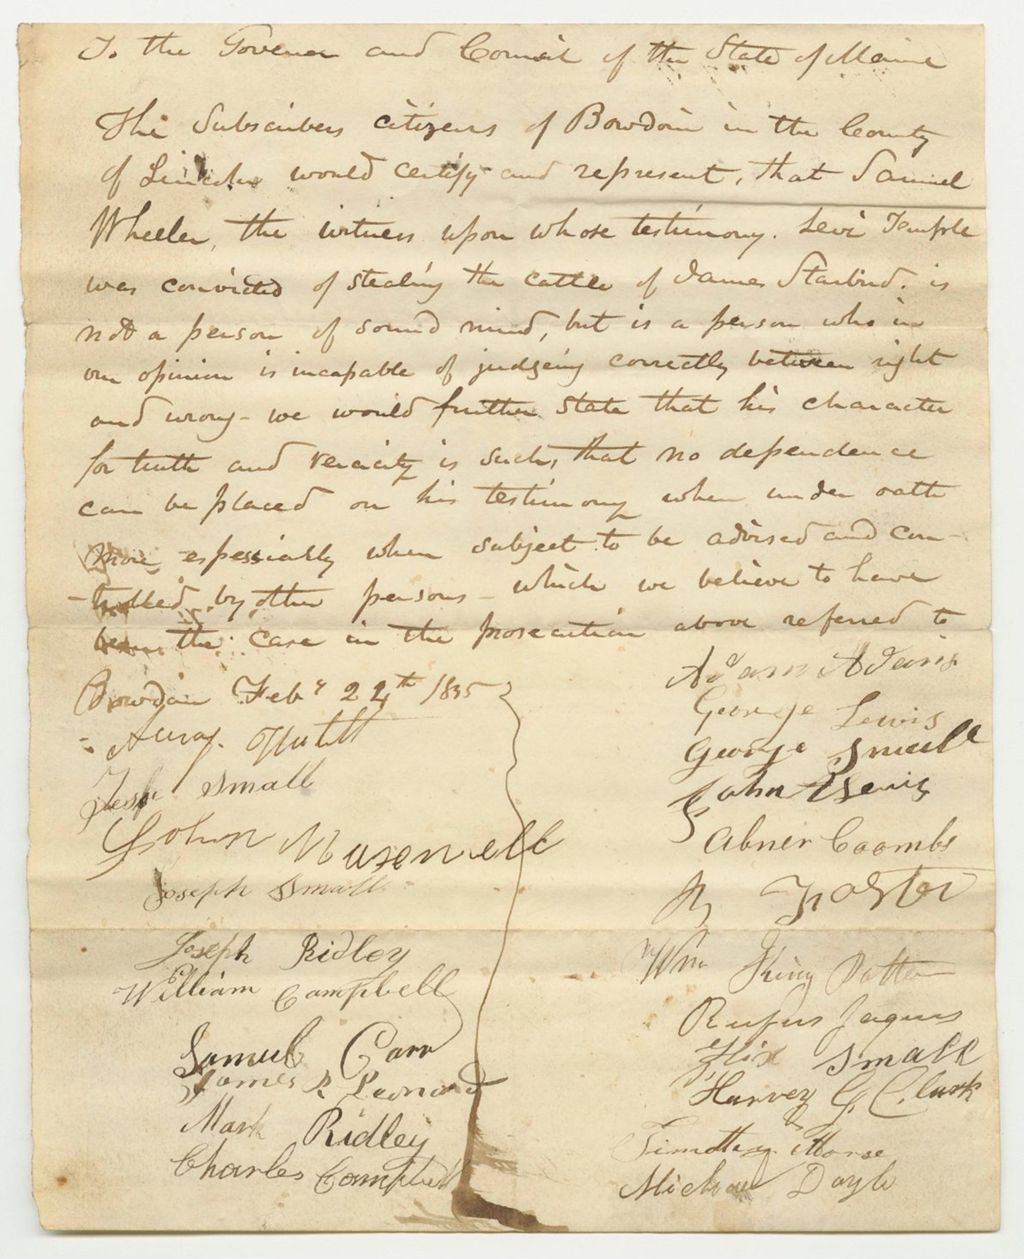 To the Governer and Council of the State of Maine
The Subscribers citizens of Bowdoin in the County
of Lincoln would certify and represent, that Samuel
Wheeler, the witness upon whose testimony. Levi Temple
was convicted of stealing the cattle of James Starbird. is
not a person of sound mind, but is a person who in
our opinion is incapable of judgeing correctly between right
and wrong - we would further state that his character
for truth and veracity is such, that no dependence
can be placed on his testimony when under oath
more espessially when subject to be advised and con-
-trolled by other persons - which we believe to have
been the case in the prosecution above referred to
Bowdoin Feby 24th 1835
Small
John
Joseph Small
Joseph Ridley
William Campbell
Samuel Carr
James P. Leonard
Mark Ridley
Charles Campbell
Adam Adams
George Lewis
George Small
John Lewis
Abner Coombs
Wm King Patten
Rufus Jaques
Small
Harvey G Clark
Timothy Morse
Doyle